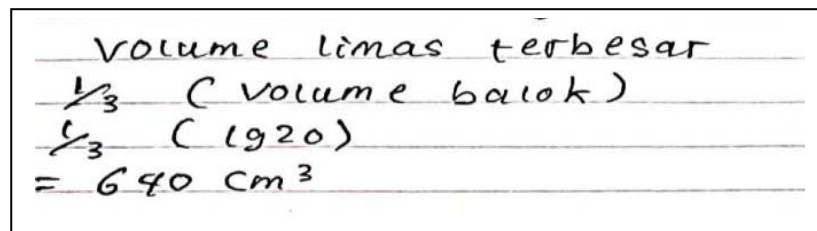 Volume limas terbesar
1/3 (volume balok)
1/3 (1920)
= 640 cm³